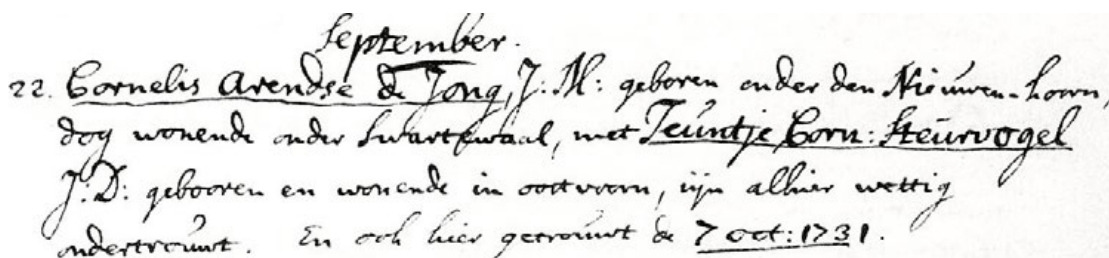 September.
22. Cornelis Arendse de Jong, J: M: geboren onder den Nieuwen-hoorn,
dog wonende onder Swartewaal, met Teuntje Corn: Steurvogel
J: D: gebooren en wonende in oostvoorn, zijn alhier wettig
ondertrouwt. En ook hier getrouwt de 7 oct: 1731.